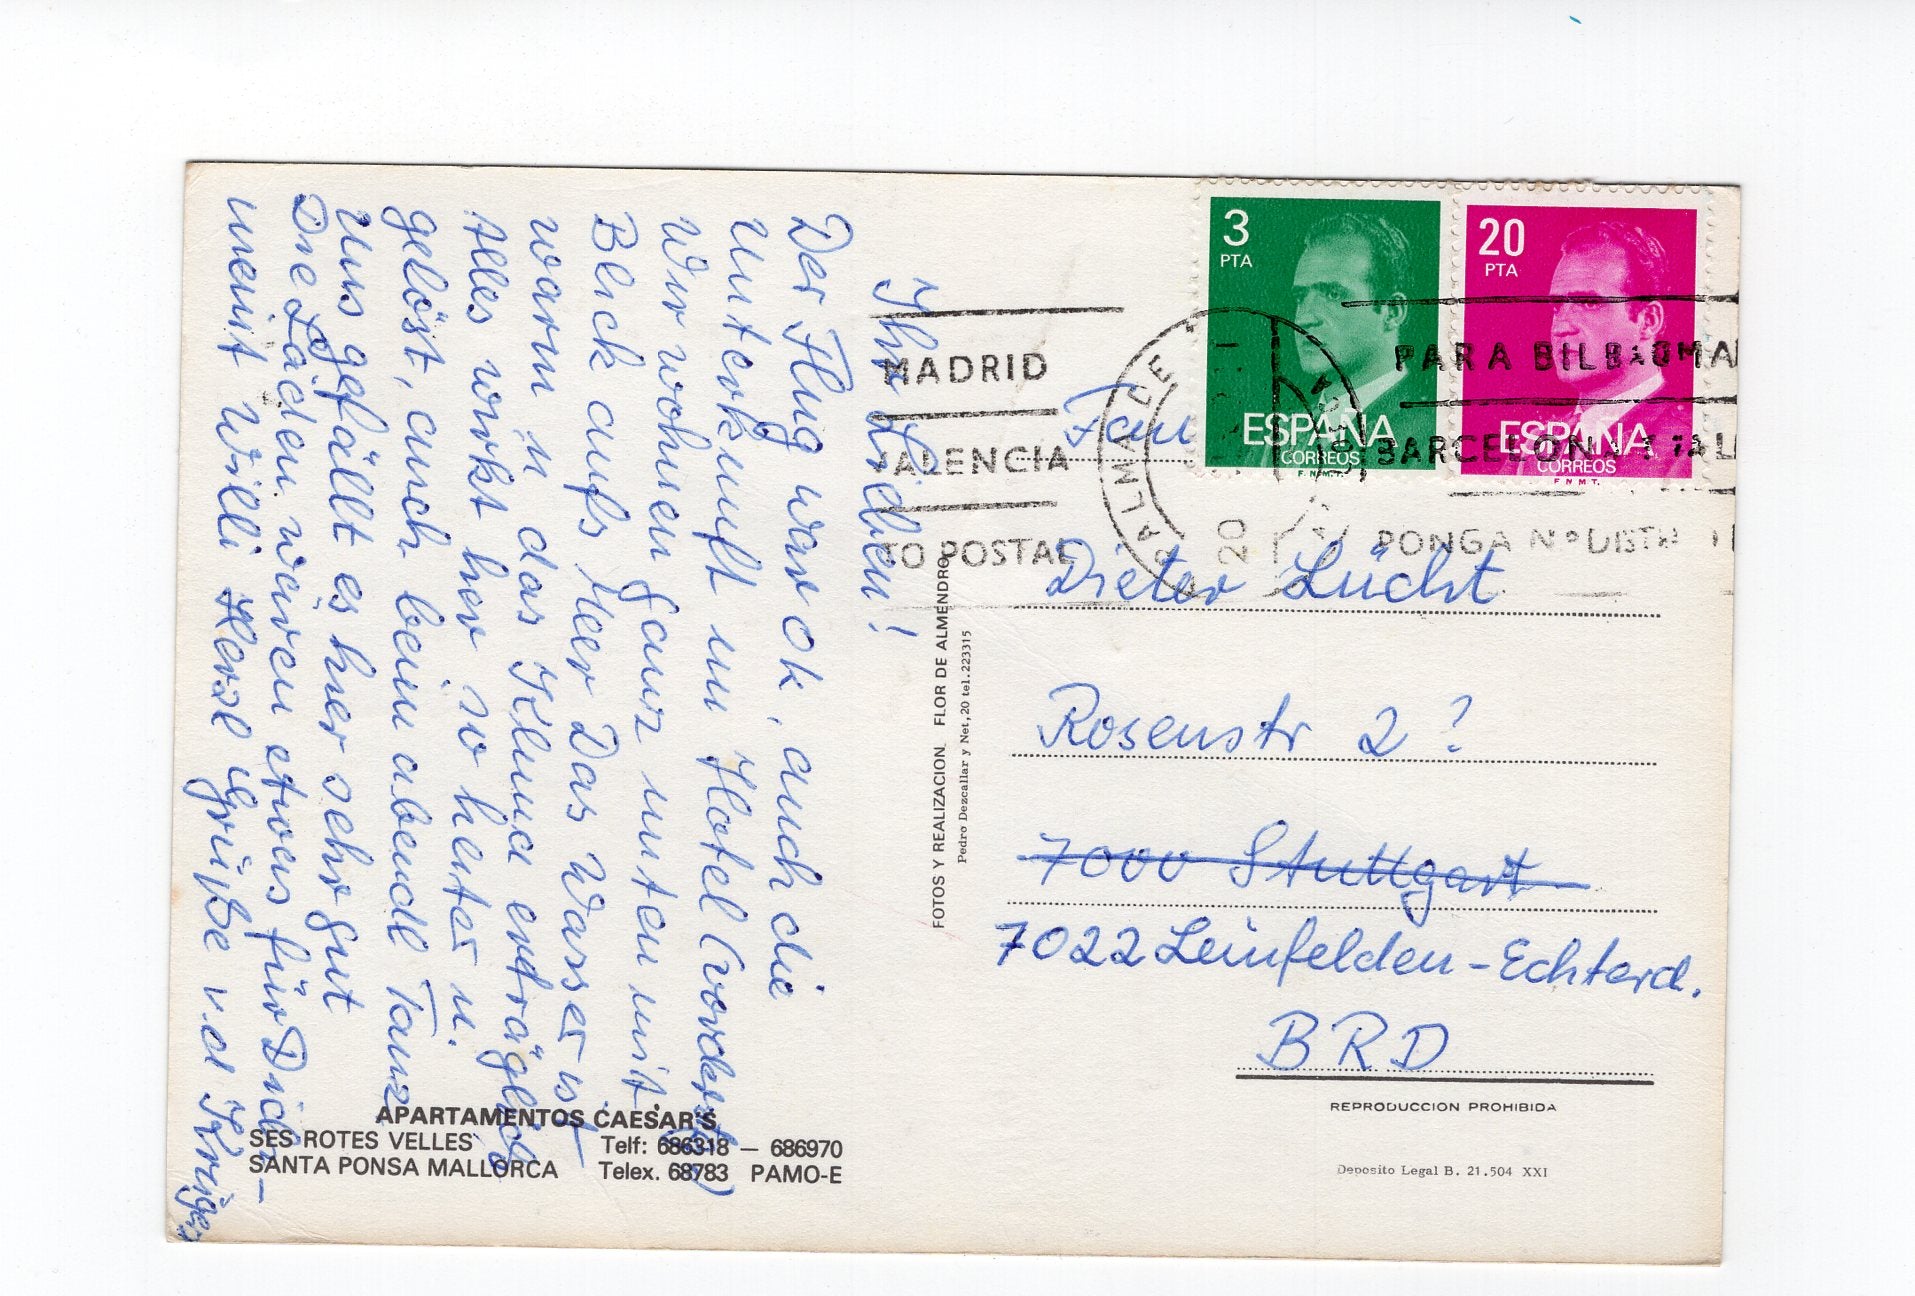 Ihr Lieben!
Der Flug war ok, auch die
Unterkunft im Hotel (vorderst)
Wir wohnen ganz unten mit
Blick aufs Meer Das Wasser ist
warm u das Klima erträglich
Alles wirkt hier so heiter u.
gelöst, auch beim abendl Tanz
Uns gefällt es hier sehr gut
Die Läden wären etwas für Dich –
meint Willi Herzl Grüße v.d Krügers
APARTAMENTOS CAESAR'S
SES ROTES VELLES Telf: 686318 — 686970
SANTA PONSA MALLORCA Telex. 68783 PAMO-E
FOTOS Y REALIZACION. FLOR DE ALMENDRO
Pedro Dezcallar y Net, 20 tel. 223315
3 PTA
ESPAÑA
CORREOS
F.N.M.T.
20 PTA
ESPAÑA
CORREOS
F.N.M.T.
MADRID
ALENCIA
TO POSTAL
PALMA DE
20
PARA BILBAO MA
BARCELONA Y
PONGA Nº DIST
Fam
Dieter Lücht
Rosenstr 2?
7000 Stuttgart
7022 Leinfelden-Echterd.
BRD
REPRODUCCION PROHIBIDA
Deposito Legal B. 21.504 XXI